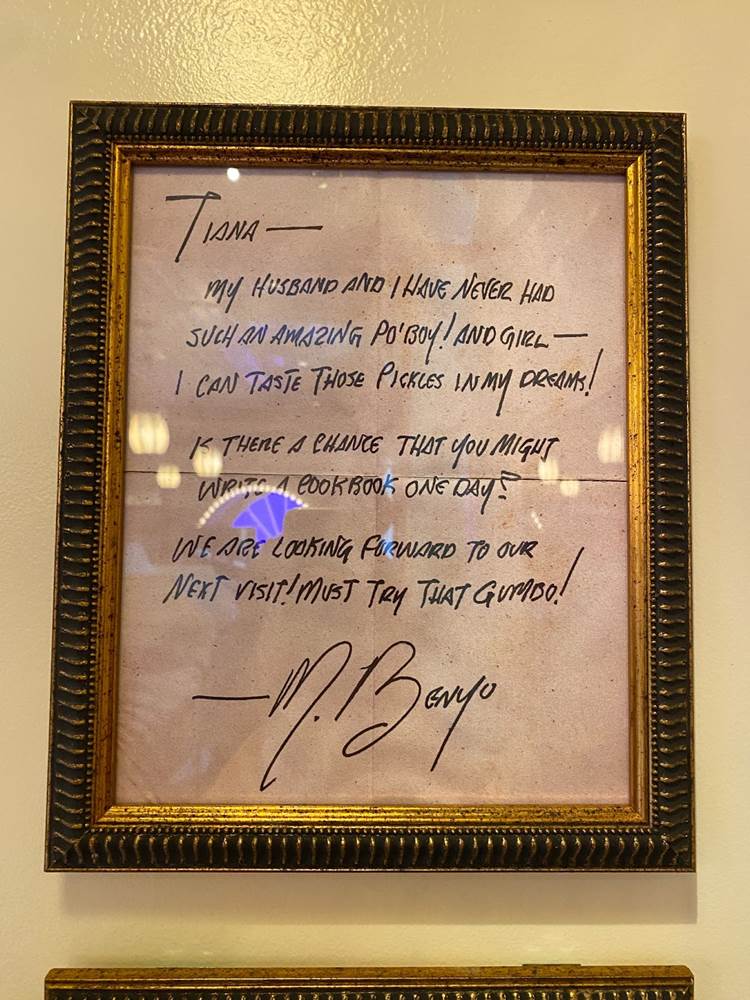 TIANA —
MY HUSBAND AND I HAVE NEVER HAD
SUCH AN AMAZING PO'BOY! AND GIRL —
I CAN TASTE THOSE PICKLES IN MY DREAMS!
IS THERE A CHANCE THAT YOU MIGHT
WRITE A COOKBOOK ONE DAY?
WE ARE LOOKING FORWARD TO OUR
NEXT VISIT! MUST TRY THAT GUMBO!
— M. BENYO